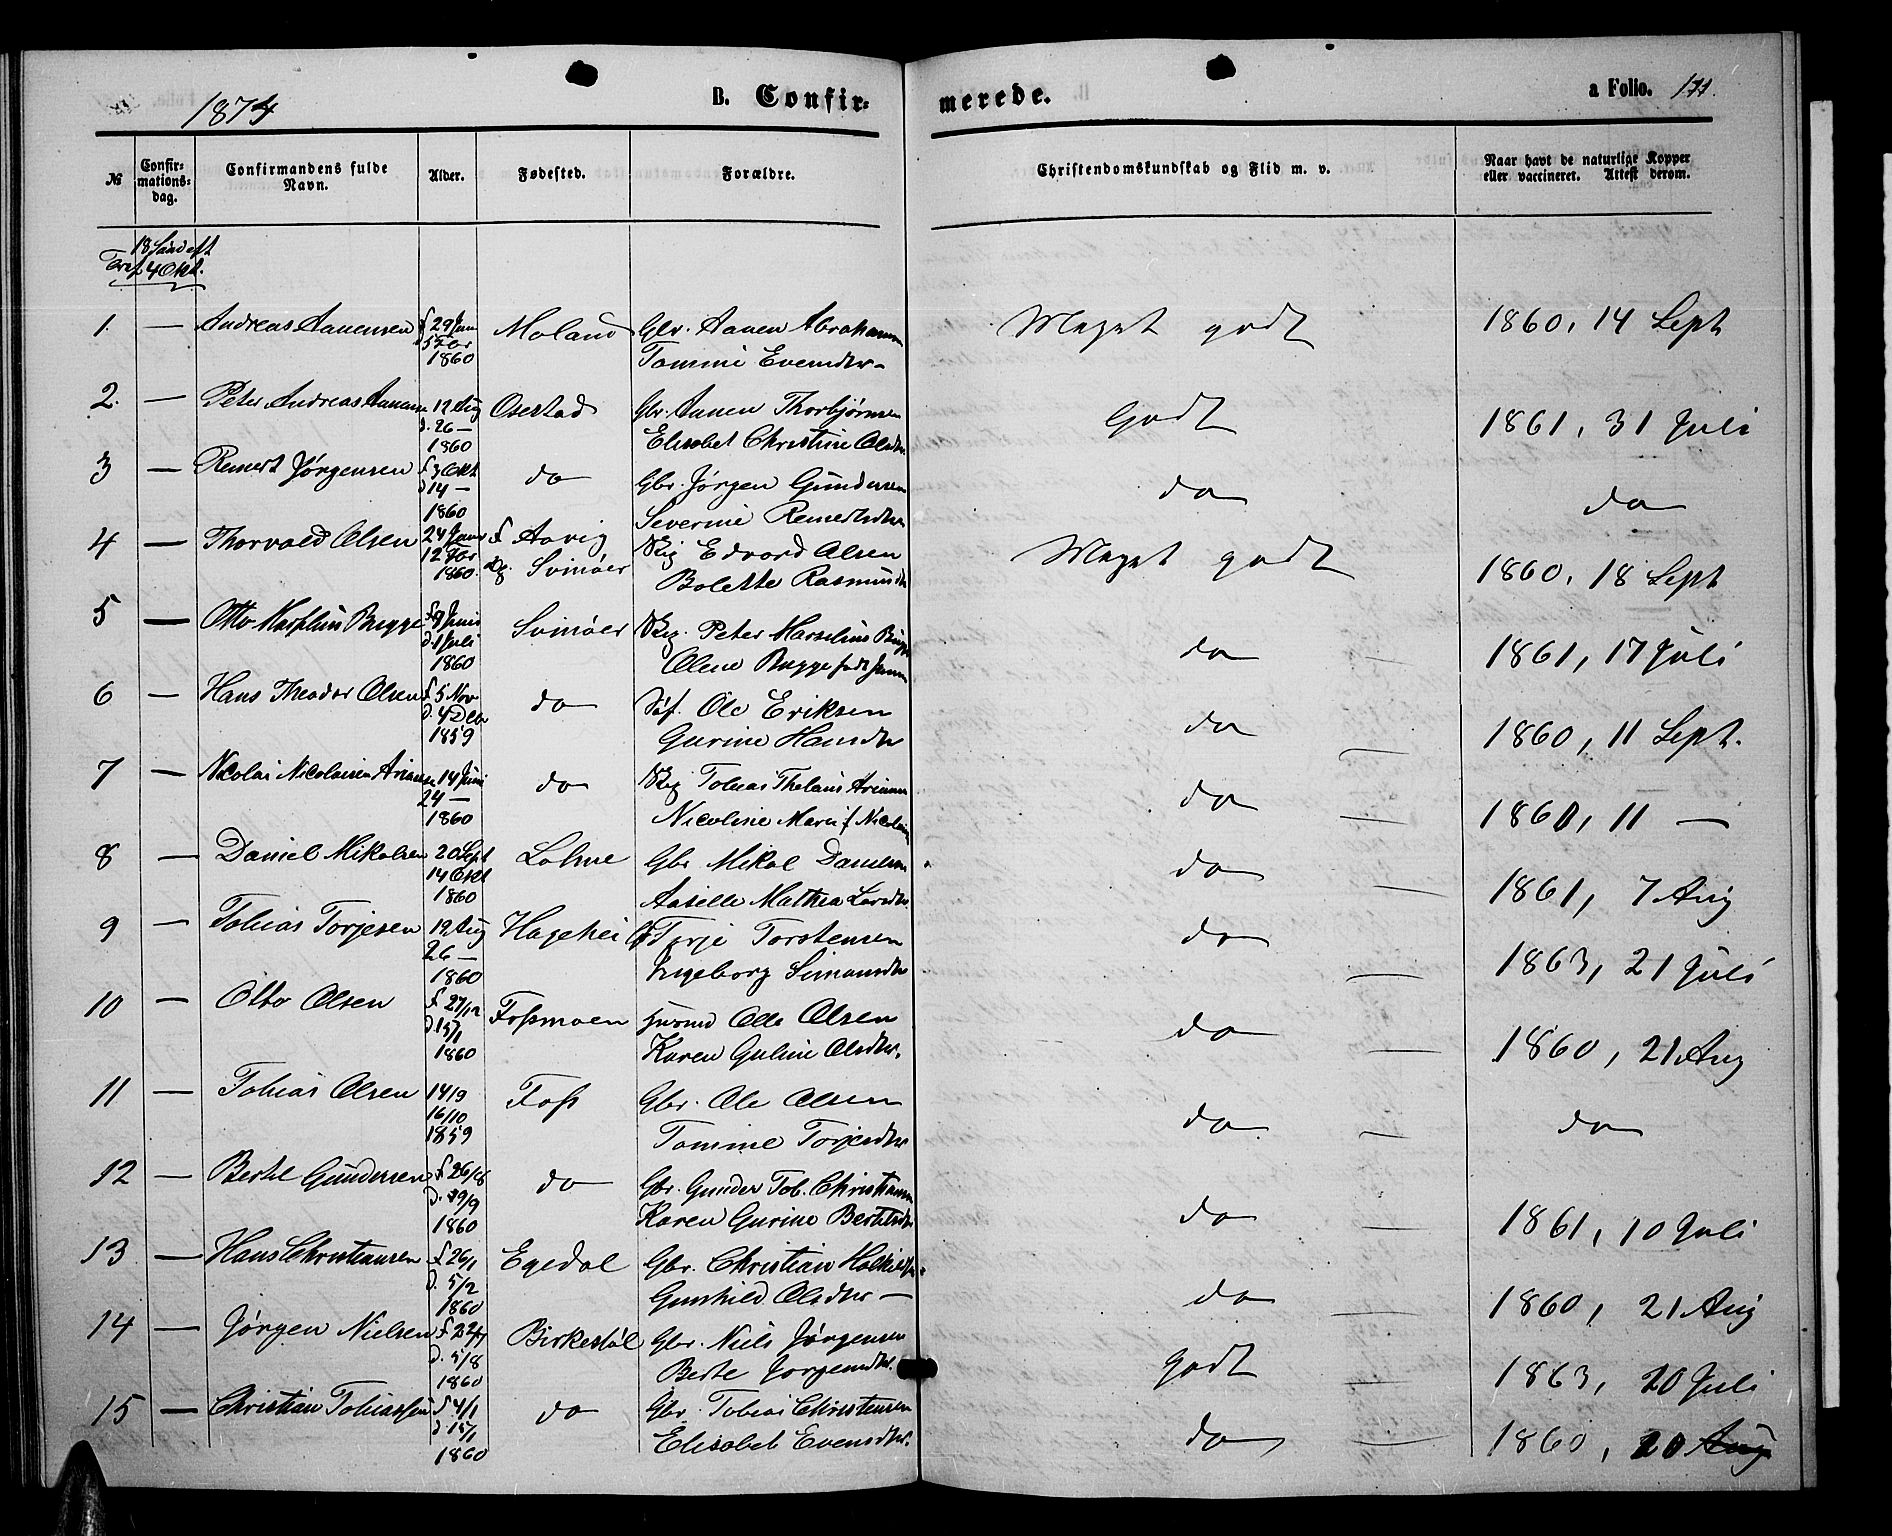 1874 B. Confir- merede. a Folio. 171.
№ Confir-mations-dag. Confirmandens fulde Navn. Alder. Fødested. Forældre. Christendomskundskab og Flid m. v. Naar havt de naturlige Kopper eller vaccineret. Attest derom.
18 Sønd eft
Tref 4 Okt.
1. — Andreas Aanensen f 29 Jan Moland Gbr. Aanen Abrahamsen Meget godt 1860, 14 Sept
1860 Tomine Evensdtr
2. — Peter Andreas Aanensen 12 Aug Osestad Gbr. Aanen Thorbjørnsen Godt 1861, 31 Juli
d. 26 —
1860 Elisabet Christine Olsdtr
3 — Remert Jørgensen f 3 Okt do Gbr. Jørgen Gundersen do do
d 14 —
1860 Severine Remertsdtr
4 — Thorvald Olsen 24 Janr f Aavig Skig Edvard Olsen Meget godt 1860, 18 Sept
12 Febr dg. Svinøer
1860. Bolette Rasmusdtr
5 — Otto Marselius Bugge Juni Svinøer Skig. Peter Marselius Bugge do — 1861, 17 Juli
d. 1 Juli
1860 Olene Bugge født
6 — Hans Theodor Olsen f 5 Nov do Ole Eriksen do — 1860, 11 Sept.
d. 4 Dcbr
1859 Gurine Hansdtr
7 — Nicolai Nicolaisen 14 Juni do Skig Tobias do — 1860, 11 —
24 —
1860 Nicoline
8 — Daniel Mikalsen 20 Sept Lohne Gbr Mikal Danielsen do — 1861, 7 Aug
14 Okt
1860 Aaselle Mathea Larsdtr.
9 — Tobias Torjesen 12 Aug Hagehei Torje Torstensen do — 1863, 21 Juli
26 —
1860 Ingeborg Simonsdtr
10 — Otto Olsen f 27/12 Fossmoen Husmd Olle Olsen do — 1860, 21 Aug
d. 15/1
1860 Karen Guline Olsdtr.
11 — Tobias Olsen 14/9 Foss Gbr. Ole Olsen do — do
16/10
1859 Tomine Torjesdtr
12 — Bertel Gundersen f 26/8 do Gbr. Gunder Tob. Christiansen do — 1861, 10 Juli
d. 29/9
1860 Karen Gurine Bertelsdtr
13 — Hans Christiansen f 26/1 Egedal Gbr. Christian do — 1860, 21 Aug
d. 5/2
1860 Gunhild Olsdtr —
14 — Jørgen Nielsen f 22/7 Birkestøl Gbr. Niels Jørgensen godt 1863, 20 Juli
d. 5/8
1860 Berte Jørgensdtr.
15 — Christian Tobiassen f 4/1 do Gbr. Tobias Christensen do — 1860, 20 Aug
d 15/1
1860 Elisabet Evensdtr.